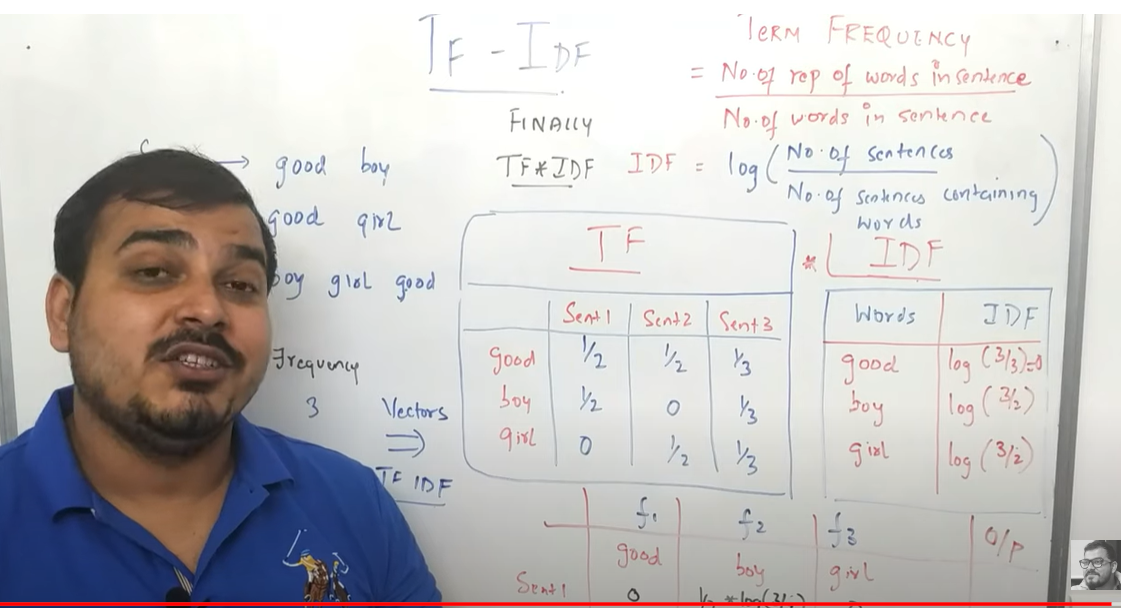 TF - IDF
TERM FREQUENCY
= No. of rep of words in sentence
No. of words in sentence
FINALLY
TF * IDF
IDF = log ( No. of sentences
No. of sentences containing
words )
→ good boy
good girl
boy girl good
Frequency
3
Vectors
⇒
TF IDF
TF
Sent 1 Sent 2 Sent 3
good 1/2 1/2 1/3
boy 1/2 0 1/3
girl 0 1/2 1/3
* IDF
Words IDF
good log (3/3)=0
boy log (3/2)
girl log (3/2)
f1 f2 f3 O/P
good boy girl
Sent 1 0 1/2 * log(3/2)